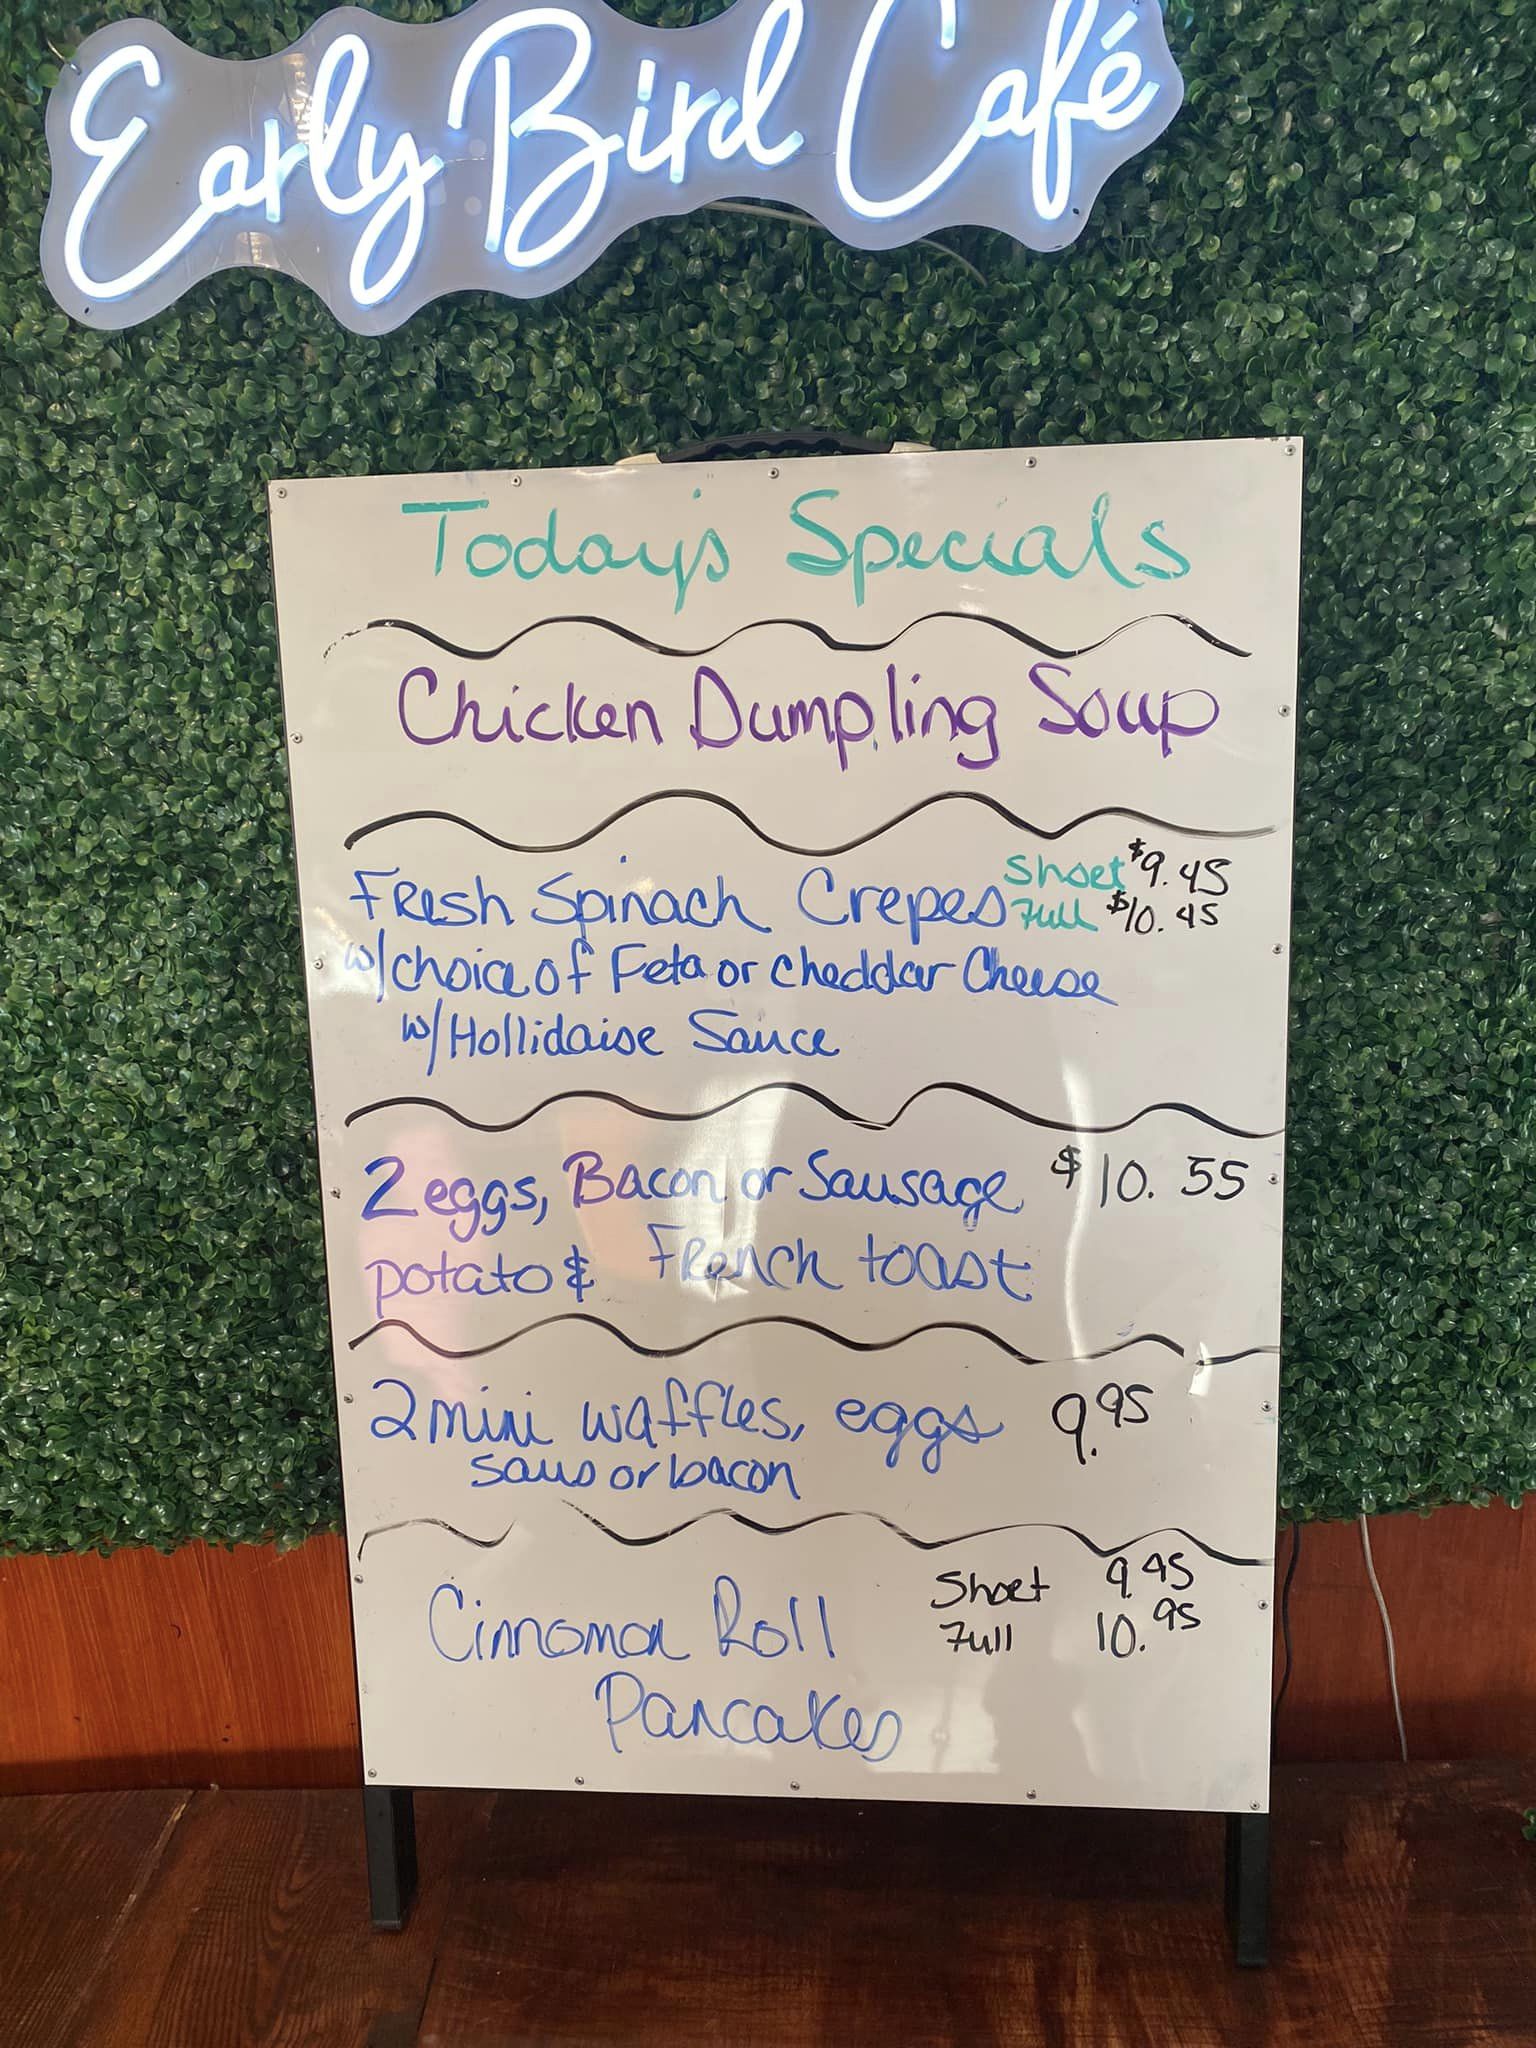 Early Bird Café
Today's Specials
Chicken Dumpling Soup
Fresh Spinach Crepes Short $9.45
Full $10.45
w/choice of Feta or cheddar Cheese
w/Hollidaise Sauce
2 eggs, Bacon or Sausage $10.55
potato & French toast
2 mini waffles, eggs 9.95
saus or bacon
Cinnomon Roll Short 9.45
Full 10.95
Pancakes